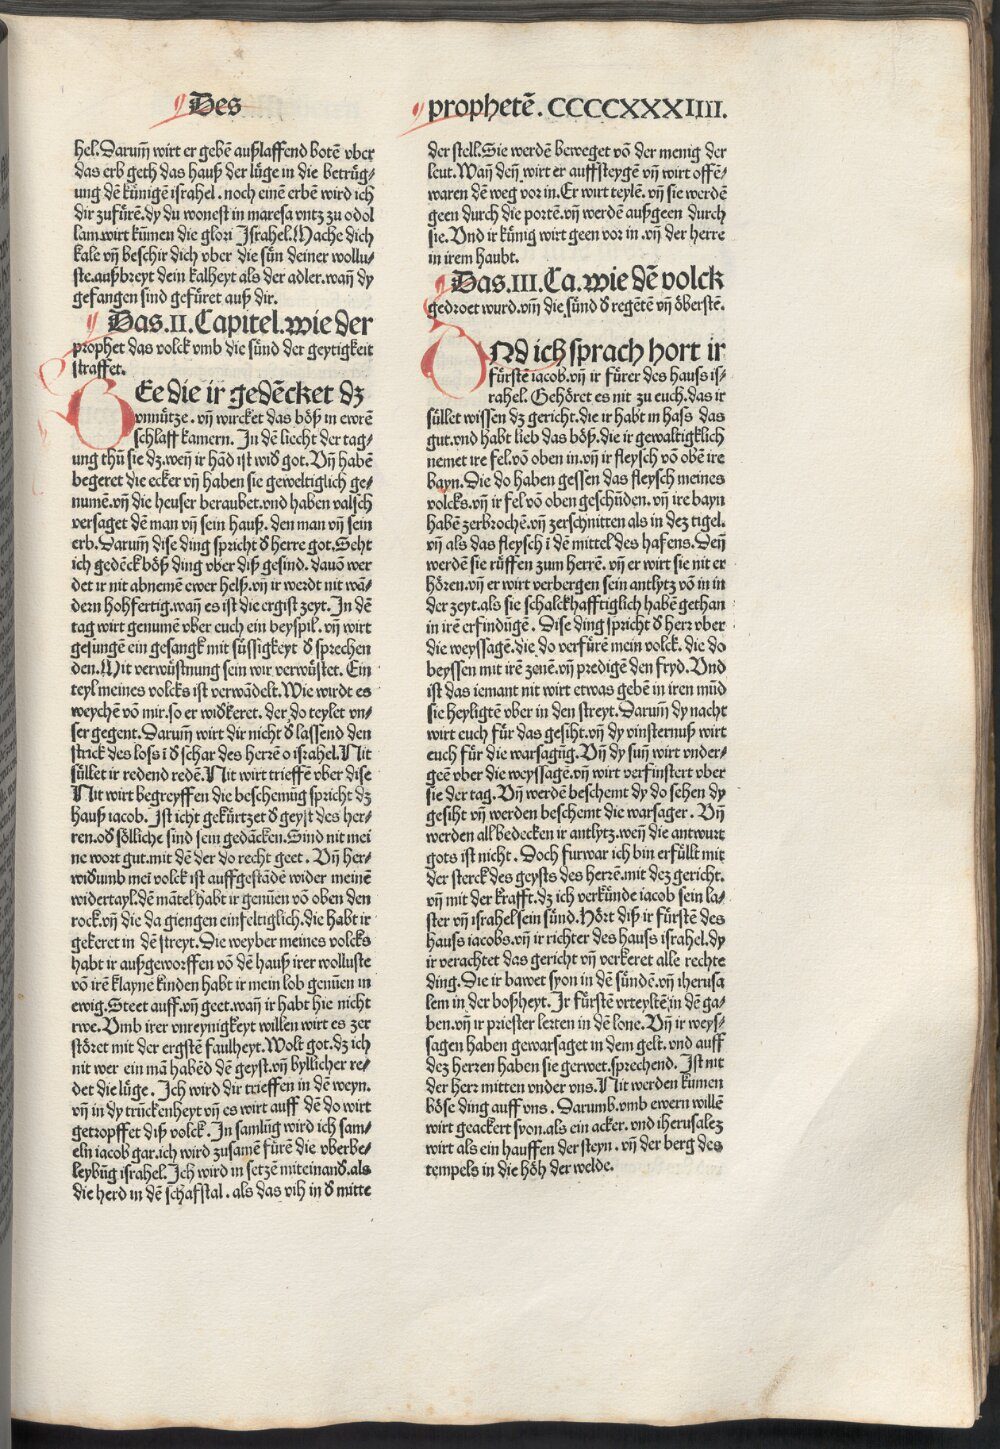 Des
prophetē. CCCCXXXIIII.
hel. Darum̄ wirt er gebē außlaffend botē vber
das erb geth das hauß der lüge in die betrüg⸗
ung dē künigē israhel. noch einē erbē wird ich
dir zufürē. dy du wonest in maresa vntz zu odol
lam. wirt kūmen die glori Israhel. Mache dich
kale vn̄ beschir dich vber die sün deiner wollu⸗
ste. außbreyt dein kalheyt als der adler. wan̄ dy
gefangen sind gefüret auß dir.
Das. II. Capitel. wie der
prophet das volck vmb die sünd der geytigkeit
straffet.
Ee die ir gedēcket dz
vnnütze. vn̄ wircket das böß in ewrē
schlaff kamern. In dē liecht der tag⸗
ung thū sie dz. wen̄ ir hād ist wid̕ got. Vn̄ habē
begeret die ecker vn̄ haben sie geweltiglich ge⸗
numē. vn̄ die heuser beraubet. vnd haben valsch
versaget dē man vn̄ sein hauß. den man vn̄ sein
erb. Darum̄ dise ding spricht d̕ herre got. Seht
ich gedēck böß ding vber diß gesind. dauō wer
det ir nit abnemē ewer helß. vn̄ ir werdt nit wā⸗
dern hohfertig. wan̄ es ist die ergist zeyt. In dē
tag wirt genumē vber euch ein beyspil. vn̄ wirt
gesungē ein gesangk mit süssigkeyt d̕ sprechen
den. Mit verwüstnung sein wir verwüstet. Ein
teyl meines volcks ist verwādelt. Wie wirdt es
weychē vō mir. so er wid̕keret. der do teylet vn⸗
ser gegent. Darum̄ wirt dir nicht d̕ lassend den
strick des loss ī d̕ schar des herrē o israhel. Nit
süllet ir redend redē. Nit wirt trieffē vber dise
Nit wirt begreyffen die beschemūg spricht dz
hauß iacob. Ist icht gekürtzet d̕ geyst des her⸗
ren. od̕ sölliche sind sein gedācken. Sind nit mei
ne wort gut. mit dē der do recht geet. Vn̄ her⸗
wid̕umb mei volck ist auffgestādē wider meinē
widertayl. dē mātel habt ir genūen vō oben den
rock. vn̄ die da giengen einfeltiglich. die habt ir
gekeret in dē streyt. Die weyber meines volcks
habt ir außgeworffen vō dē hauß irer wolluste
vō irē klaynē kinden habt ir mein lob genūen in
ewig. Steet auff. vn̄ geet. wan̄ ir habt hie nicht
rwe. Vmb irer vnreynigkeyt willen wirt es zer
störet mit der ergstē faulheyt. Wolt got. dz ich
nit wer ein mā habēd dē geyst. vn̄ byllicher re⸗
det die lüge. Ich wird dir trieffen in dē weyn.
vn̄ in dy trückenheyt vn̄ es wirt auff dē do wirt
getropffet diß volck. In samlūg wird ich sam⸗
eln iacob gar. ich wird zusamē fürē die vberbe⸗
leybūg israhel. Ich wird in setzē miteinand̕. als
die herd in dē schafstal. als das vih in d̕ mitte
der stell. Sie werdē beweget vō der menig der
leut. Wan̄ den̄ wirt er auffsteygē vn̄ wirt offē⸗
waren dē weg vor in. Er wirt teylē. vn̄ sie werdē
geen durch die portē. vn̄ werdē außgeen durch
sie. Vnd ir künig wirt geen vor in. vn̄ der herre
in irem haubt.
Das. III. Ca. wie dē volck
gedroet wurd. vm̄ die sünd d̕ regētē vn̄ öberstē.
Nd ich sprach hort ir
fürstē iacob. vn̄ ir fürer des hauss is⸗
rahel. Gehöret es nit zu euch. das ir
süllet wissen dz gericht. die ir habt in hass das
gut. vnd habt lieb das böß. die ir gewaltigklich
nemet ire fel. vō oben in. vn̄ ir fleysch vō obē ire
bayn. Die do haben gessen das fleysch meines
volcks. vn̄ ir fel vō oben geschūden. vn̄ ire bayn
habē zerbrochē. vn̄ zerschnitten als in dez tigel.
vn̄ als das fleysch ī dē mittel des hafens. Den̄
werdē sie rüffen zum herrē. vn̄ er wirt sie nit er
hören. vn̄ er wirt verbergen sein antlytz vō in in
der zeyt. als sie schalckhafftiglich habē gethan
in irē erfindūgē. Dise ding spricht d̕ herr vber
die weyssagē. die do verfürē mein volck. die do
beyssen mit irē zenē. vn̄ predigē den fryd. Vnd
ist das iemant nit wirt etwas gebē in iren mūd
sie heyligtē vber in den streyt. Darum̄ dy nacht
wirt euch für das gesiht. vn̄ dy vinsternuß wirt
euch für die warsagūg. Vn̄ dy sun̄ wirt vnder⸗
geē vber die weyssagē. vn̄ wirt verfinstert vber
sie der tag. Vn̄ werdē beschemt dy do sehen dy
gesiht vn̄ werden beschemt die warsager. Vn̄
werden all bedecken ir antlytz. wen̄ die antwurt
gots ist nicht. Doch furwar ich bin erfüllt mit
der sterck des geysts des herrē. mit dez gericht.
vn̄ mit der krafft. dz ich verkünde iacob sein la⸗
ster vn̄ israhel sein sünd. Hört diß ir fürstē des
hauss iacobs. vn̄ ir richter des hauss israhel. dy
ir verachtet das gericht vn̄ verkeret alle rechte
ding. Die ir bawet syon in dē sündē. vn̄ iherusa
lem in der boßheyt. Ir fürstē vrteyltē in dē ga⸗
ben. vn̄ ir priester lerten in dē lone. Vn̄ ir weys⸗
sagen haben gewarsaget in dem gelt. vnd auff
dez herren haben sie gerwet. sprechend. Ist nit
der herr mitten vnder vns. Nit werden kumen
böse ding auff vns. Darumb. vmb ewern willē
wirt geackert syon. als ein acker. vnd iherusalez
wirt als ein hauffen der steyn. vn̄ der berg des
tempels in die höh der welde.